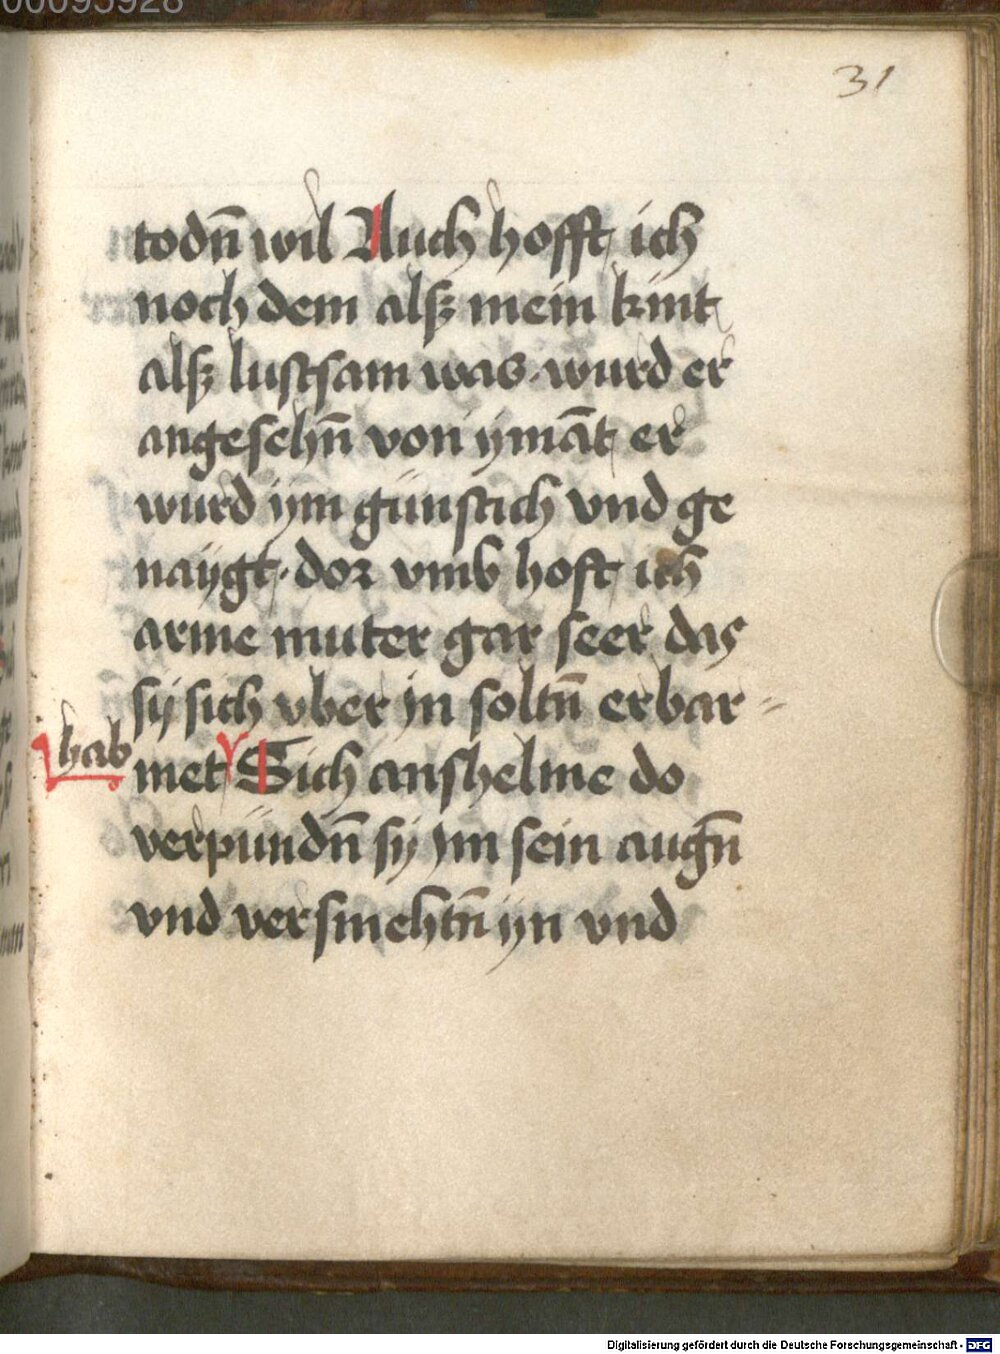 00095928
31
todn̄ wil Auch hofft ich
noch dem alß mein kint
alß lustsam was · wurd er
angesehn̄ von ymāt er
wurd ym günstich vnd ge
naÿgt · dor vmb hoft ich
arme muter gar seer das
sÿ sich vber in soltn̄ erbar=
hab
met Sich anshelme do
verpündn̄ sÿ im sein augn̄
vnd versmehtn̄ ÿn vnd
Digitalisierung gefördert durch die Deutsche Forschungsgemeinschaft - DFG